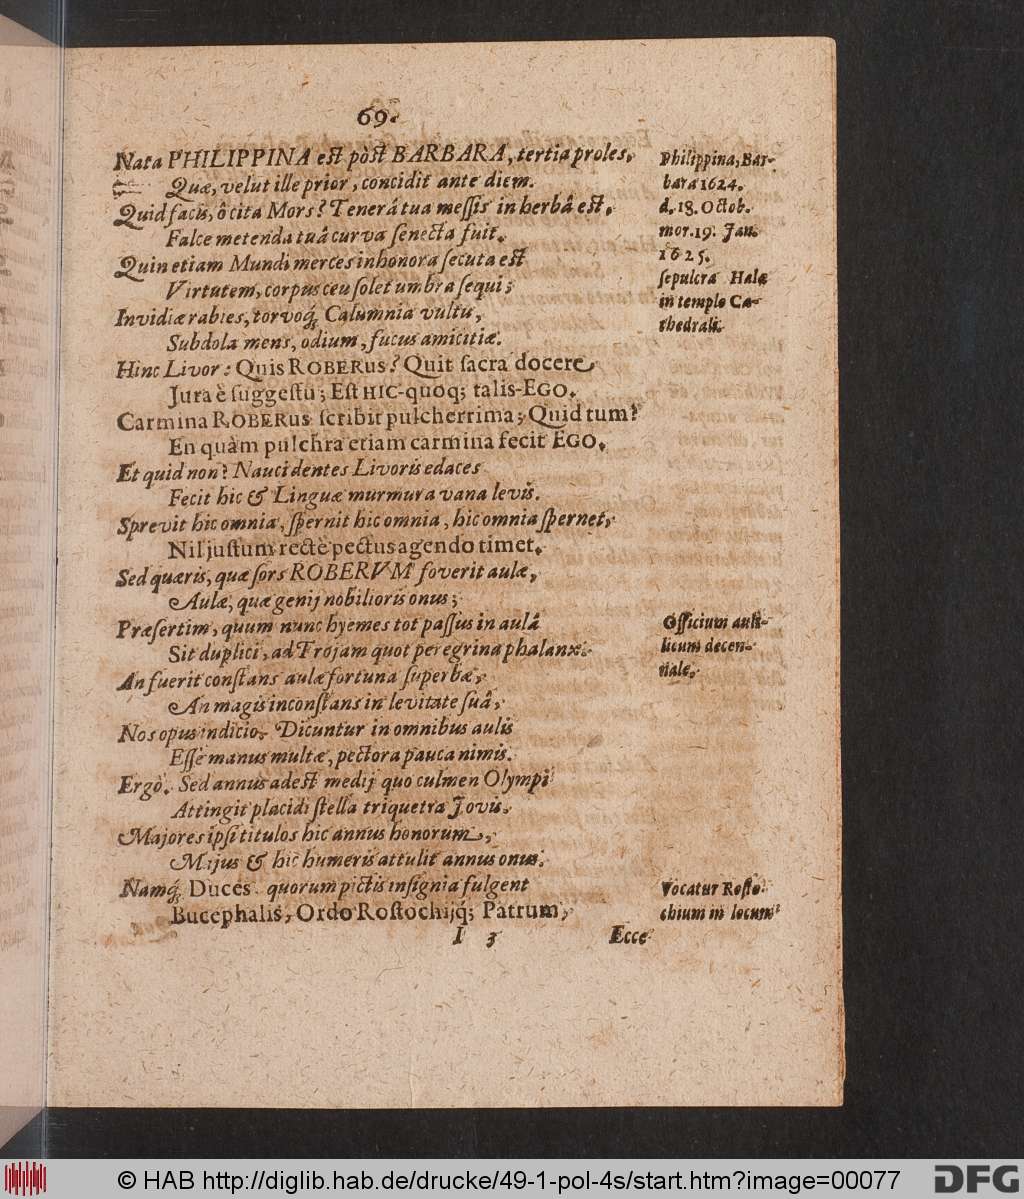 69.
Nata PHILIPPINA est pòst BARBARA, tertia proles,
Quæ, velut ille prior, concidit ante diem.
Quid facis, ô cita Mors? Tenerá tua messis in herbâ est,
Falce metenda tuâ curva senecta fuit.
Quin etiam Mundi merces inhonora secuta est
Virtutem, corpus ceu solet umbra sequi;
Invidiæ rabies, torvoq́; Calumnia vultu,
Subdola mens, odium, fucus amicitiæ.
Hinc Livor: Quis ROBERus? Quit sacra docere
Jura è suggestu; Est HIC-quoq; talis-EGO.
Carmina ROBERus scribit pulcherrima; Quid tum?
En quàm pulchra etiam carmina fecit EGO.
Et quid non? Nauci dentes Livoris edaces
Fecit hic & Linguæ murmura vana levis.
Sprevit hic omnia, spernit hic omnia, hic omnia spernet,
Nil justum rectè pectus agendo timet.
Sed quæris, quæ sors ROBERVM foverit aulæ,
Aulæ, quæ genij nobilioris onus;
Præsertim, quum nunc hyemes tot passus in aulâ
Sit duplici, ad Trojam quot peregrina phalanx.
An fuerit constans aulæ fortuna superbæ,
An magis inconstans in levitate suâ,
Nos opus indicio. Dicuntur in omnibus aulis
Esse manus multæ, pectora pauca nimis.
Ergò. Sed annus adest medij quo culmen Olympi
Attingit placidi stella triquetra Jovis.
Majores ipsi titulos hic annus honorum,
Mijus & hic humeris attulit annus onus.
Namq́; Duces quorum pictis insignia fulgent
Bucephalis, Ordo Rostochijq́; Patrum,
I 3
Ecce
Philippina, Bar-
bara 1624.
d. 18. Octob.
mor. 19. Jan.
1625.
sepulcra Halæ
in templo Ca-
thedrali.
Officium auli-
licum decen-
nale.
Vocatur Rosto-
chium in locum
© HAB http://diglib.hab.de/drucke/49-1-pol-4s/start.htm?image=00077
DFG